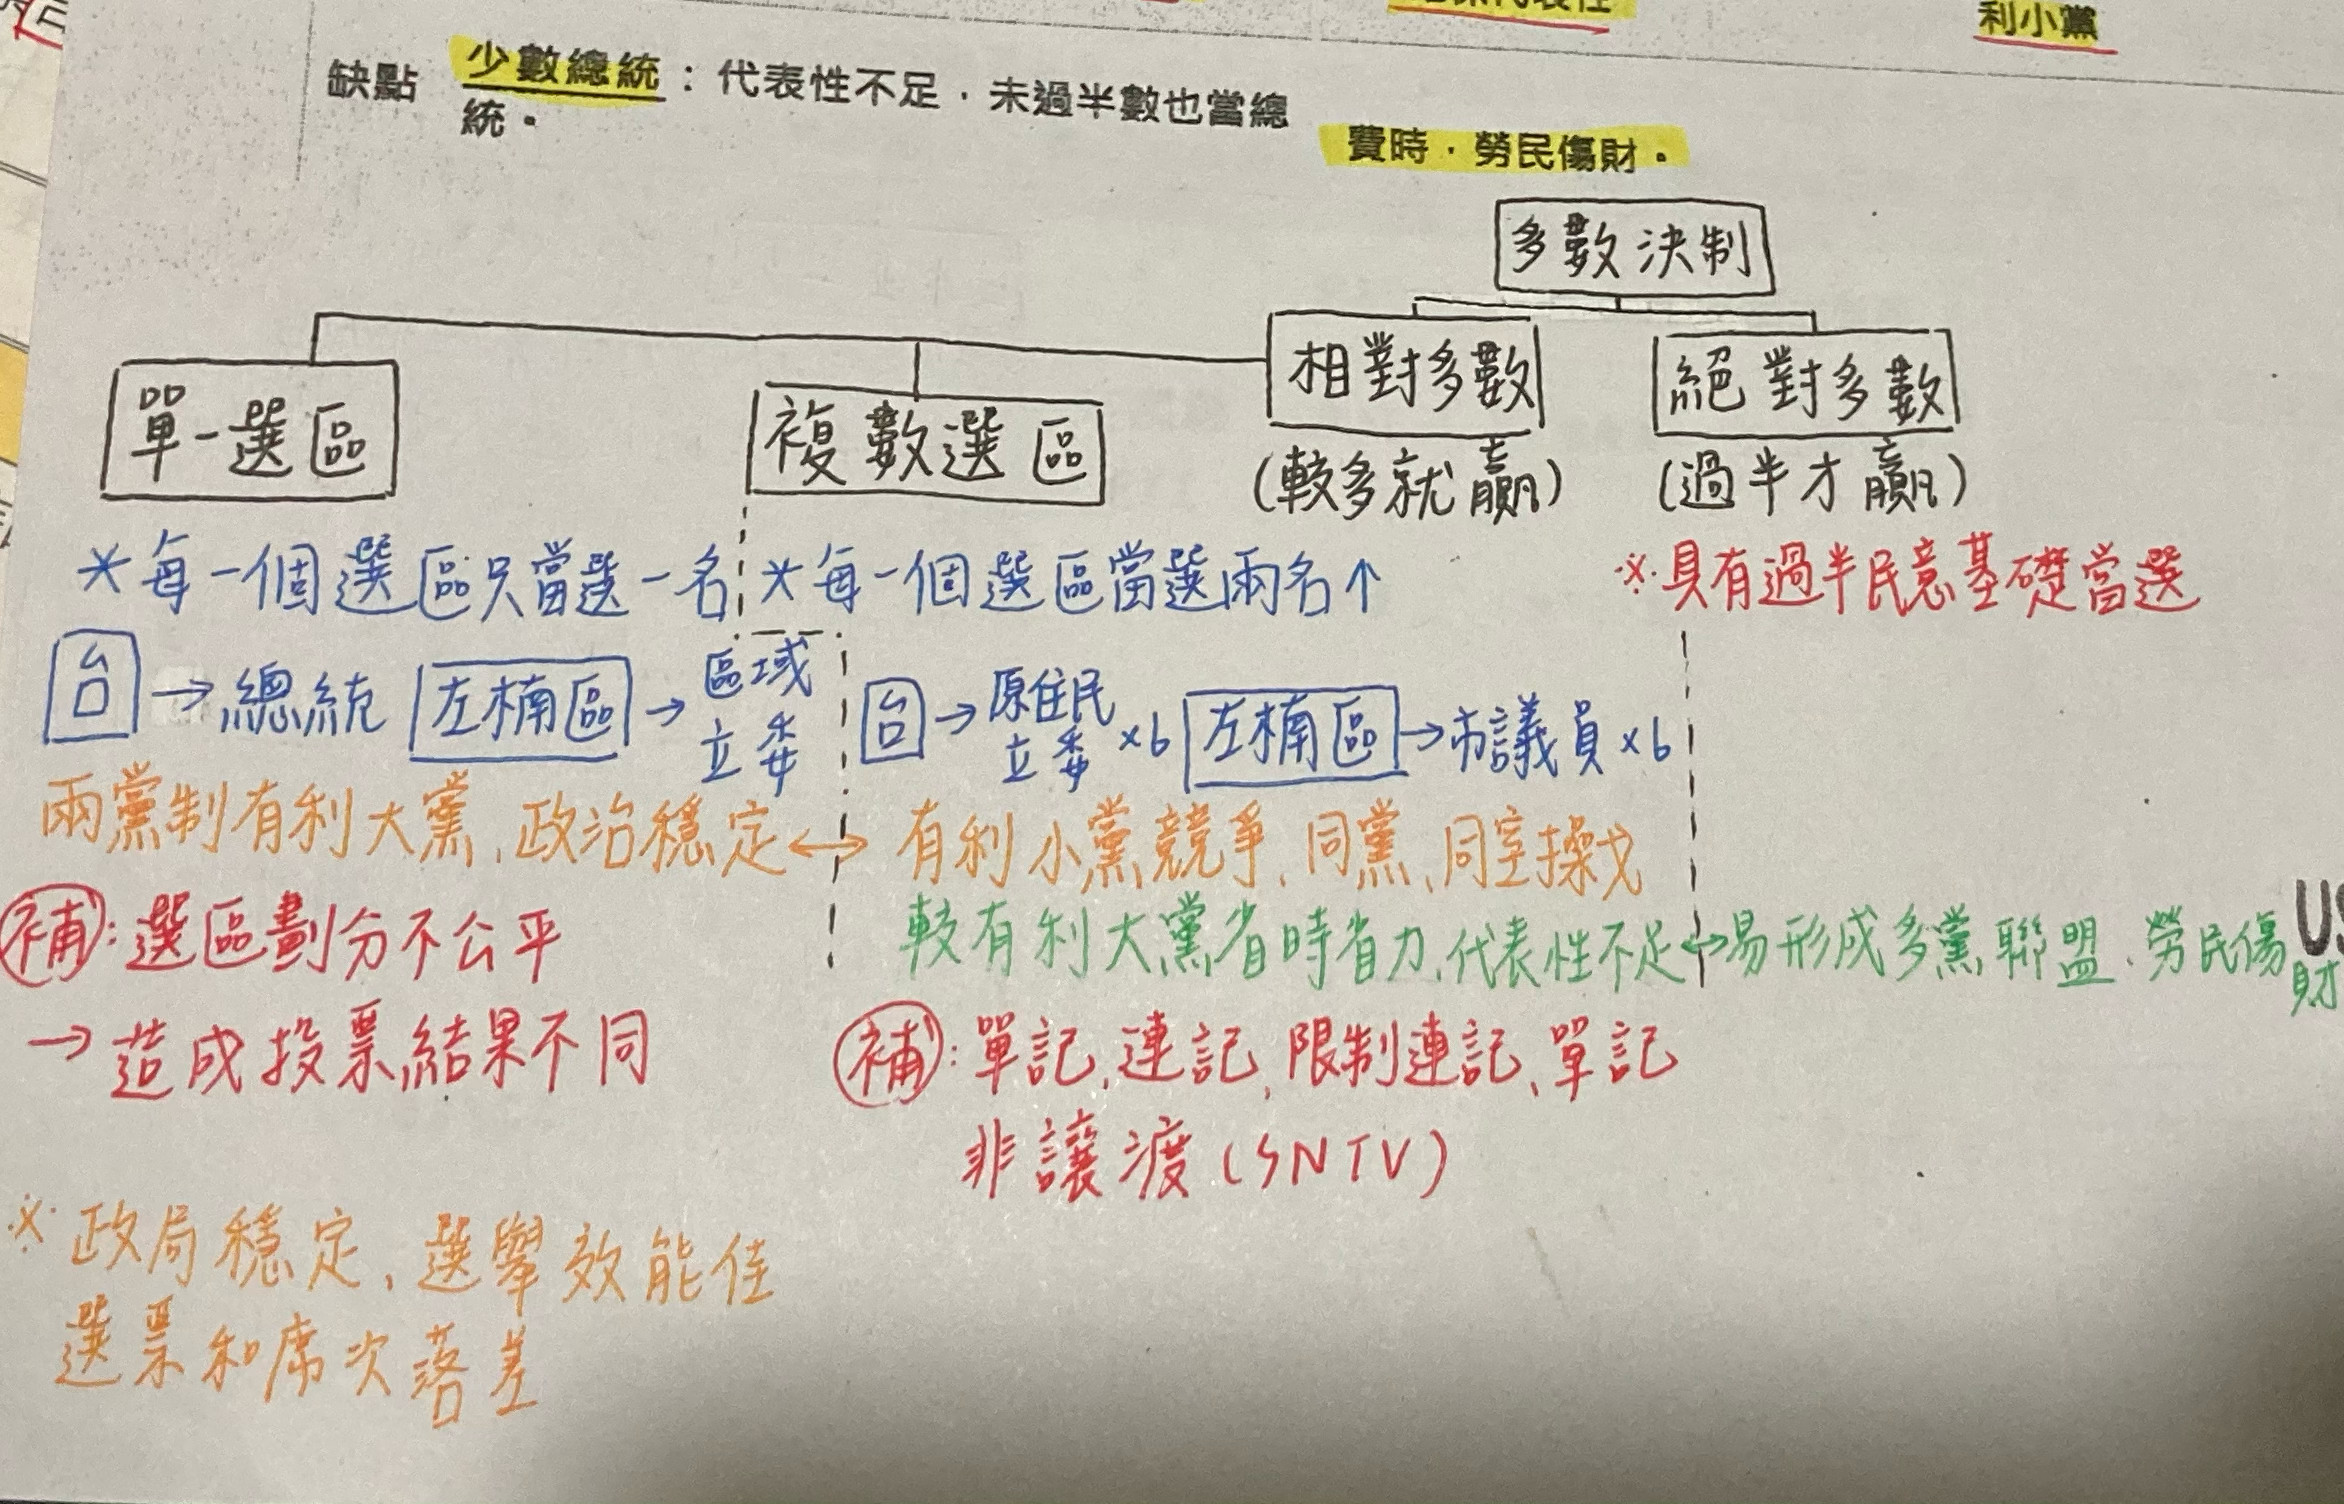 利小黨
缺點 少數總統：代表性不足，未過半數也當總
統。
費時，勞民傷財。
多數決制
相對多數 絕對多數
單一選區 複數選區
(較多就贏) (過半才贏)
*每一個選區只當選一名 *每一個選區當選兩名↑ ※具有過半民意基礎當選
台→總統 左楠區→區域立委 台→原住民立委×6 左楠區→市議員×6
兩黨制有利大黨、政治穩定↔有利小黨競爭、同黨、同室操戈
較有利大黨省時省力、代表性不足↔易形成多黨聯盟、勞民傷財
補：選區劃分不公平
→造成投票結果不同
補：單記、連記、限制連記、單記
非讓渡(SNTV)
※政局穩定、選舉效能佳
選票和席次落差